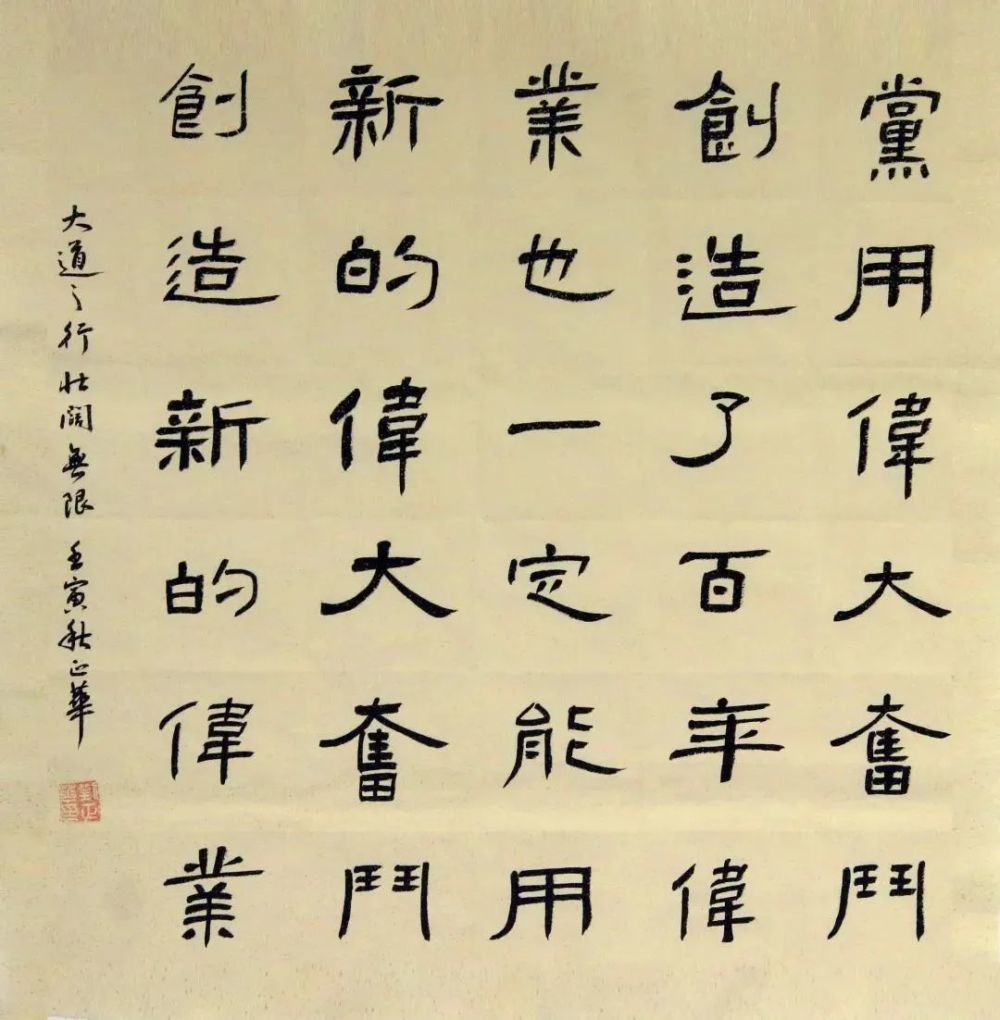 黨用偉大奮鬥
創造了百年偉
業也一定能用
新的偉大奮鬥
創造新的偉業
大道之行壯闊無限 壬寅秋正華